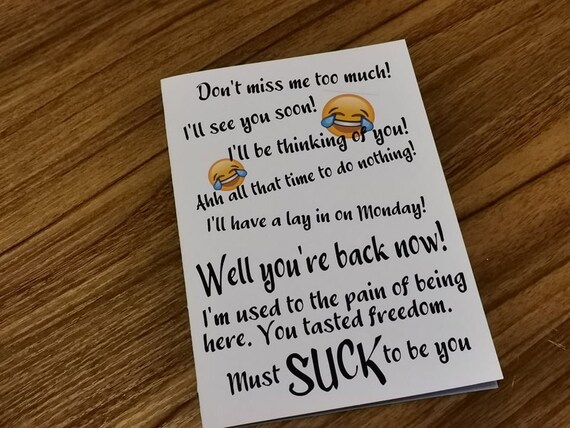 Don't miss me too much!
I'll see you soon!
I'll be thinking of you!
Ahh all that time to do nothing!
I'll have a lay in on Monday!
Well you're back now!
I'm used to the pain of being
here. You tasted freedom.
Must SUCK to be you